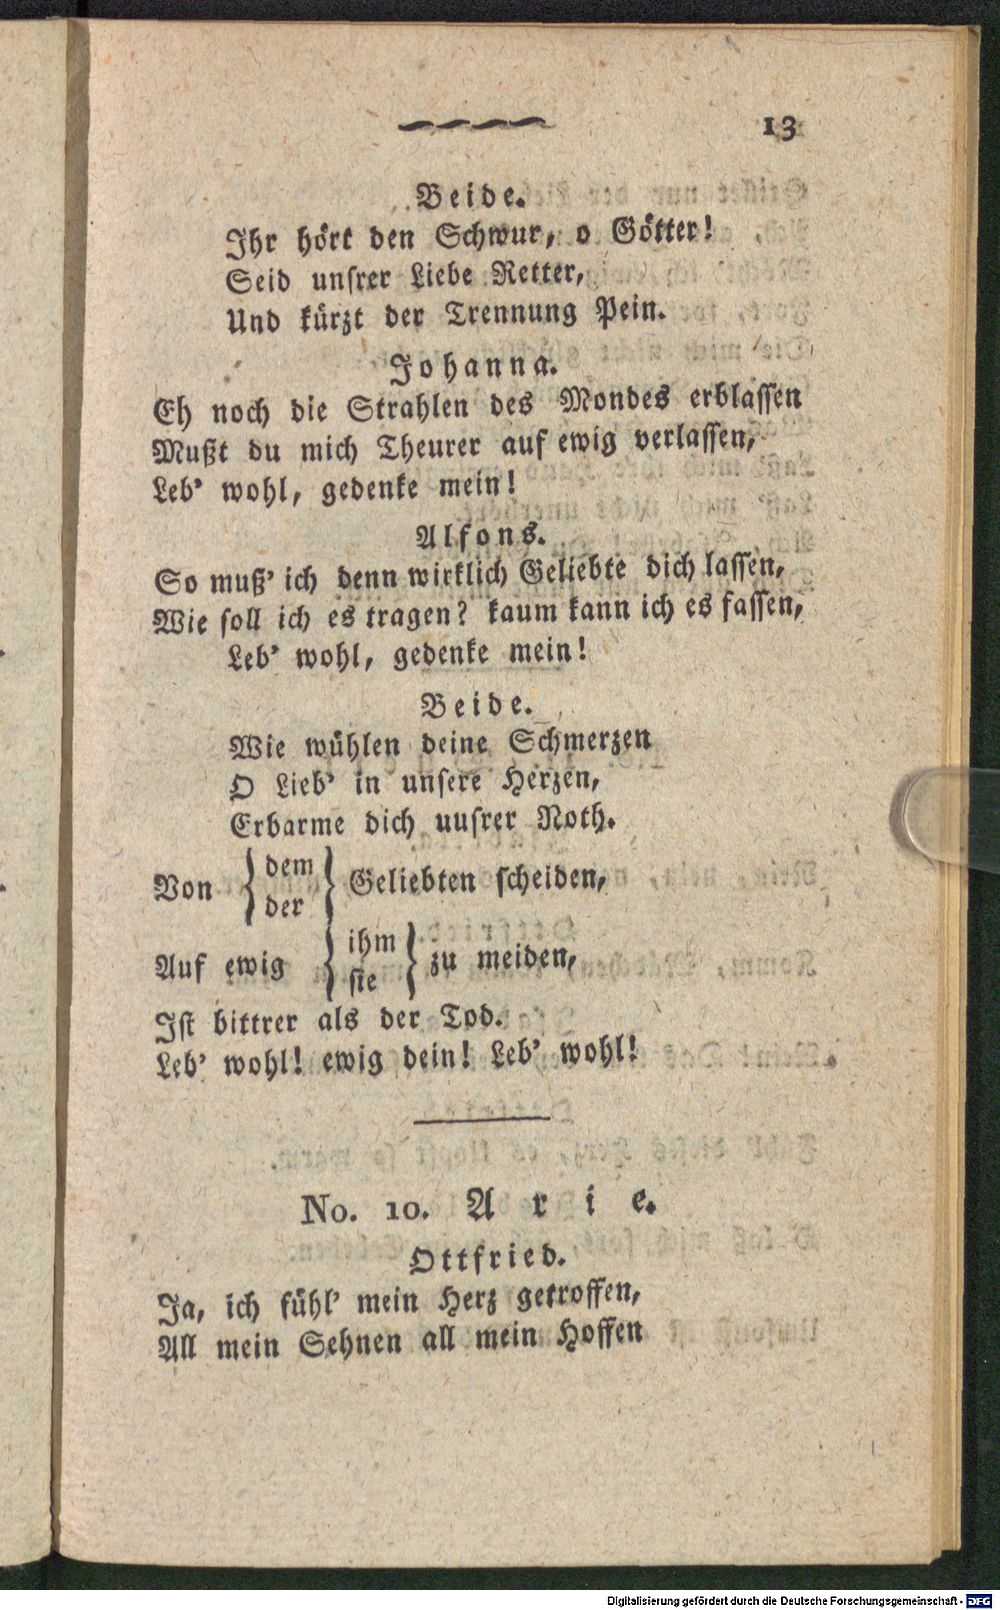 13
Beide.
Ihr hört den Schwur, o Götter!
Seid unsrer Liebe Retter,
Und kürzt der Trennung Pein.
Johanna.
Eh noch die Strahlen des Mondes erblassen
Mußt du mich Theurer auf ewig verlassen,
Leb' wohl, gedenke mein!
Alfons.
So muß' ich denn wirklich Geliebte dich lassen,
Wie soll ich es tragen? kaum kann ich es fassen,
Leb' wohl, gedenke mein!
Beide.
Wie wühlen deine Schmerzen
O Lieb' in unsere Herzen,
Erbarme dich uusrer Noth.
Von { dem / der } Geliebten scheiden,
Auf ewig { ihm / sie } zu meiden,
Ist bittrer als der Tod.
Leb' wohl! ewig dein! Leb' wohl!
No. 10. Arie.
Ottfried.
Ja, ich fühl' mein Herz getroffen,
All mein Sehnen all mein Hoffen
Digitalisierung gefördert durch die Deutsche Forschungsgemeinschaft - DFG